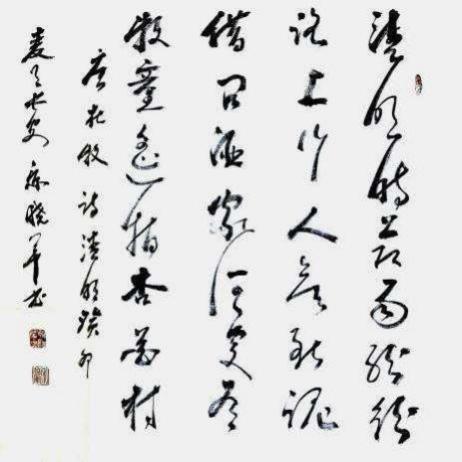 清明时节雨纷纷
路上行人欲断魂
借问酒家何处有
牧童遥指杏花村
唐杜牧诗清明癸卯
长安 晓军书